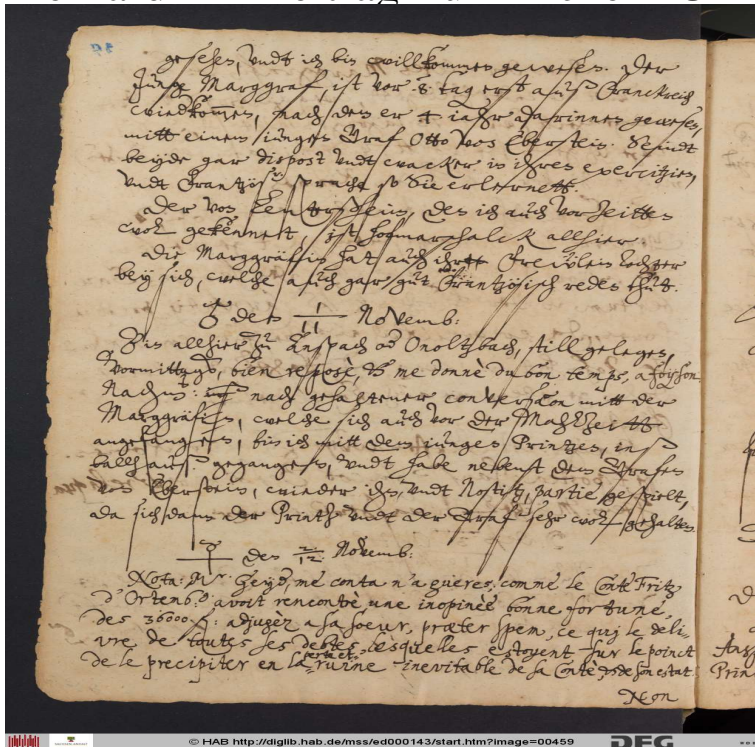 gesehen, undt ich bin willkommen gewesen. Der
Junge Marggraf, ist vor 8 tag erst auß Franckreich
wiedkom̄en, nach dem er 4 iahr darinnen gewesen,
mitt einem iungen Graf Otto von Eberstein. Seindt
beyde gar dispost undt wacker in ihren exercitzien,
undt Frantzös. sprache so Sie erlernett.
Der von, den ich auch vor zeitten
wol gekennet, ist hofmarschalck allhier.
Die Marggräfin hat auch ihre Frewlein tochter
bey sich, welche auch gar gut Frantzösisch reden thut.
♂ den 1/11 Novemb:
Bin allhier zu Anspach od Onoltzbach, still gelegen,
Vormittags, bien reposè, & me donnè du bon temps, a foyson
Nachm: nach gehaltener conversation mitt der
Marggräfin, welche sich auch vor der Mahlzeitt
angefangen, bin ich mitt dem iungen Printzen, inß
ballhauß gegangen, undt habe nebenst dem Grafen
von Eberstein, wieder ihn, undt Nostitz, partie gespielt,
da sich dann der Printz undt der Graf sehr wol gehalten.
☿ den 2/12 Novemb:
Nota: Mr. Heyd, me conta n'agueres, comme le Conte Fritz
d'Ortenb.g avoit rencontrè, une inopinèe bonne fortune,
des 36000 adjugez a sa soeur, præter spem, ce qui le deli-
vre de toutes ses debtes, lesquelles estoyent sur le poinct
de le precipiter en la perte et ruine inevitable de sa Contè & de son estat
Non
39
© HAB http://diglib.hab.de/mss/ed000143/start.htm?image=00459
DFG